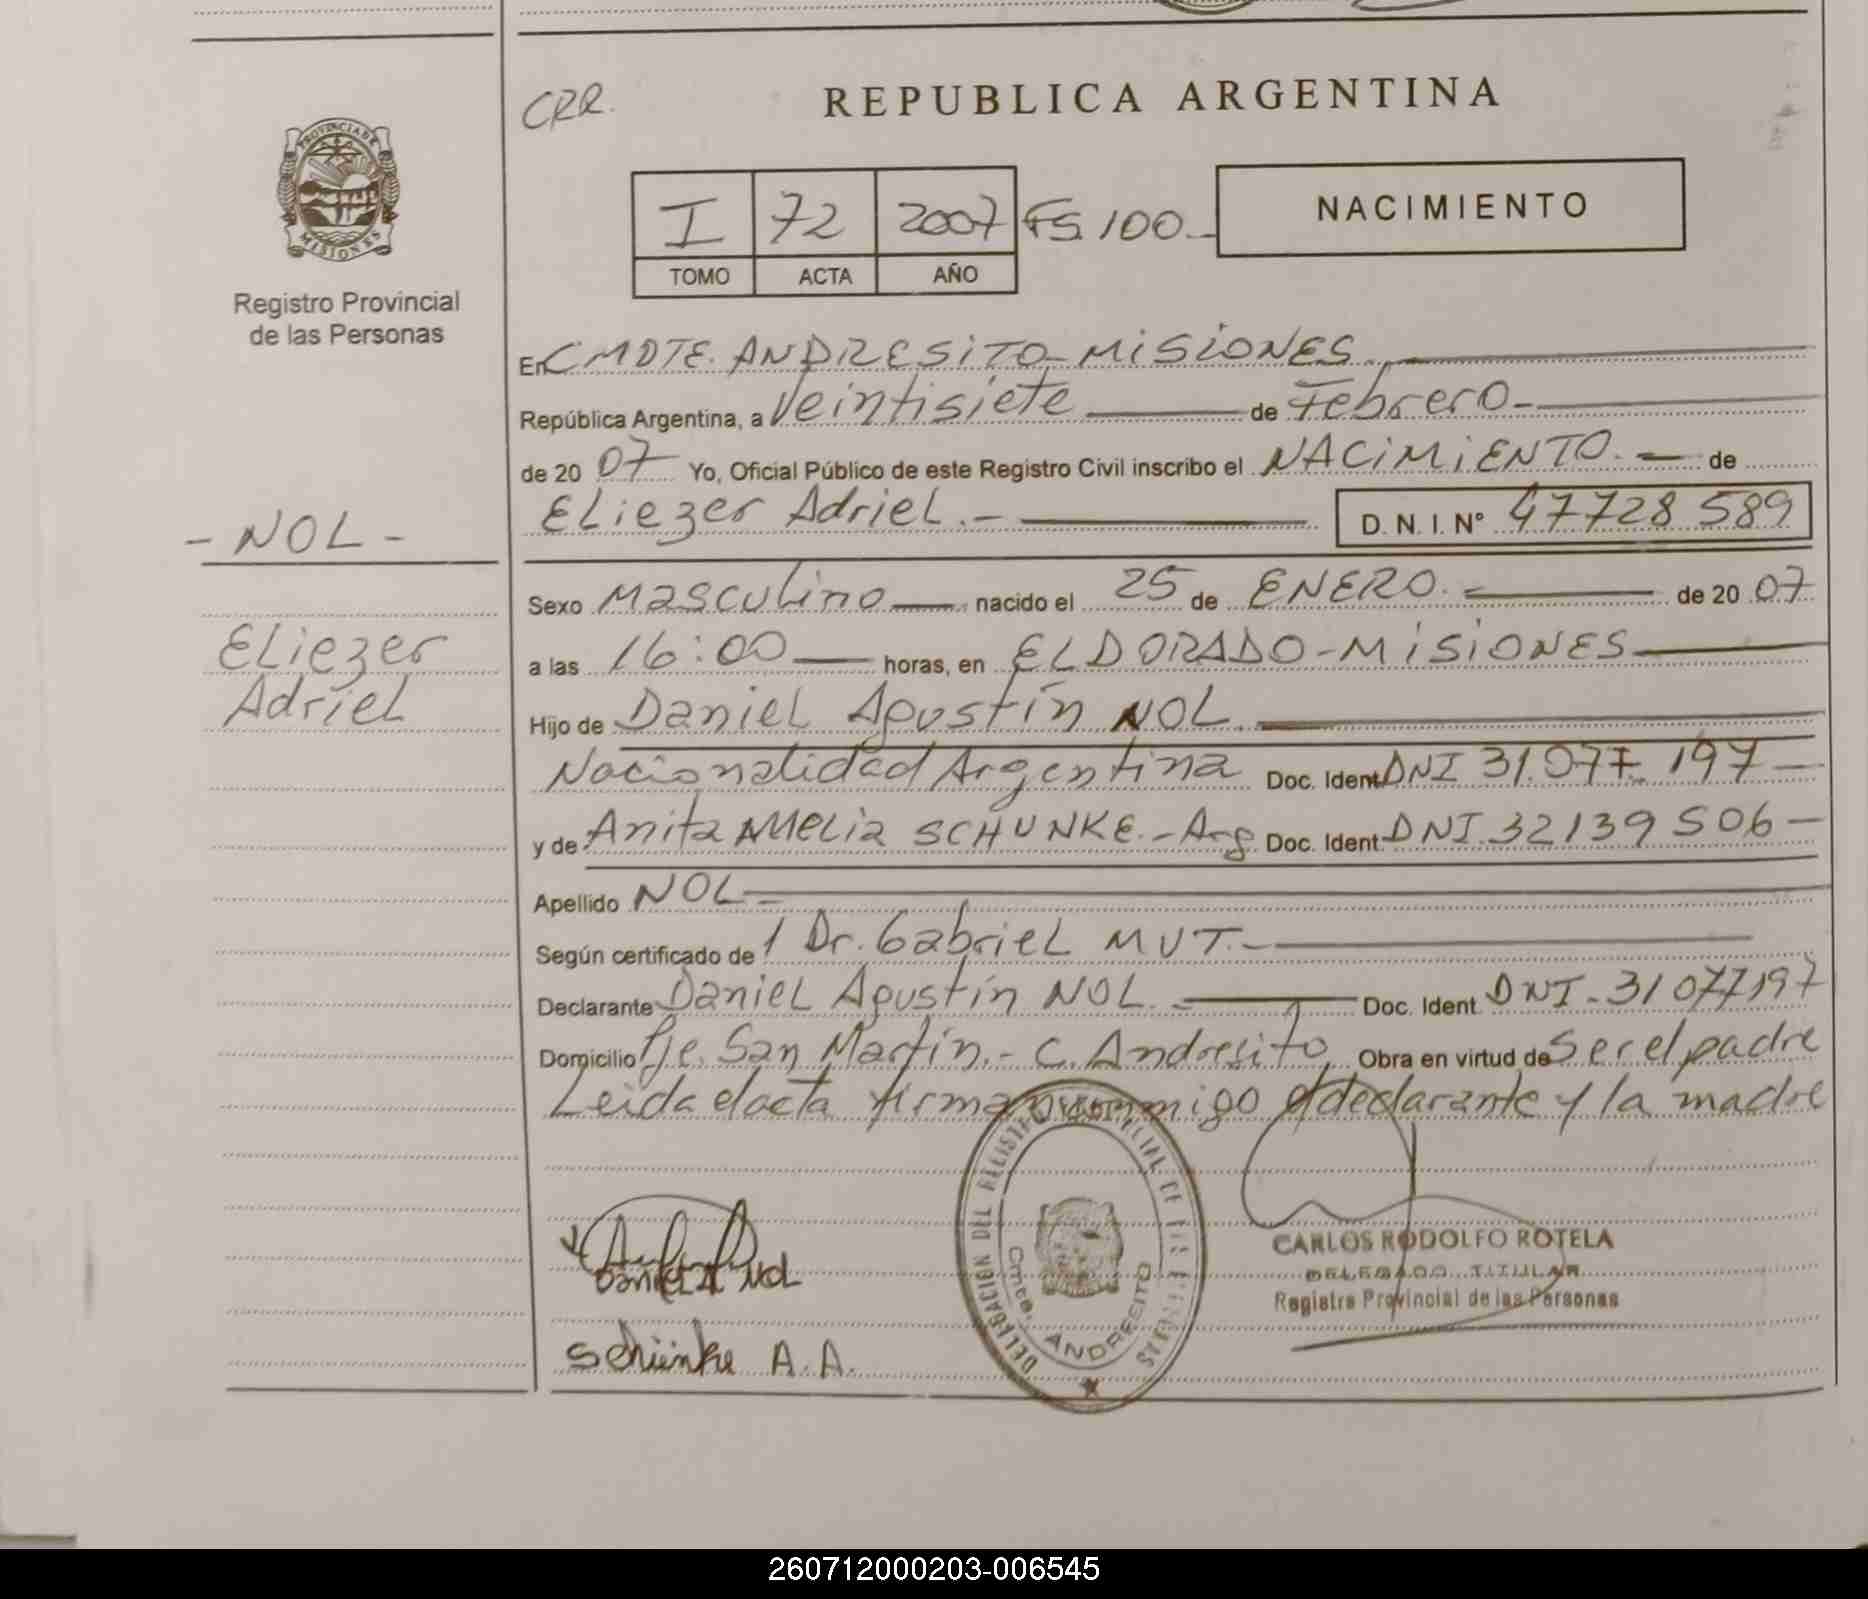 CRR.
REPUBLICA ARGENTINA
PROVINCIA DE MISIONES
Registro Provincial
de las Personas
I 72 2007 FS. 100.-
TOMO ACTA AÑO
NACIMIENTO
En CMDTE. ANDRESITO-MISIONES.
República Argentina, a Veintisiete de Febrero-
de 20 07 Yo, Oficial Público de este Registro Civil inscribo el NACIMIENTO.- de
ELiezer AdrieL.- D. N. I. Nº 47728589
- NOL -
Sexo Masculino nacido el 25 de ENERO. de 20 07
ELiezer
AdrieL
a las 16:00 horas, en ELDORADO-MISIONES
Hijo de DanieL Agustín NOL.
Nacionalidad Argentina Doc. Ident. DNI 31.077.197-
y de Anita AMeLia SCHUNKE.-Arg. Doc. Ident. DNI.32139506-
Apellido NOL-
Según certificado de 1 Dr. GabrieL MUT.-
Declarante DanieL Agustín NOL.- Doc. Ident. DNI-31077197
Domicilio Pje. San Martín.- C. Andresito Obra en virtud de Ser el padre
Leida el acta firman conmigo el declarante y la madre
DanieL A NOL
Schünke A.A.
DELEGACION DEL REGISTRO PROVINCIAL DE LAS PERSONAS
Cmte. ANDRESITO
CARLOS RODOLFO ROTELA
DELEGADO TITULAR
Registro Provincial de las Personas
260712000203-006545